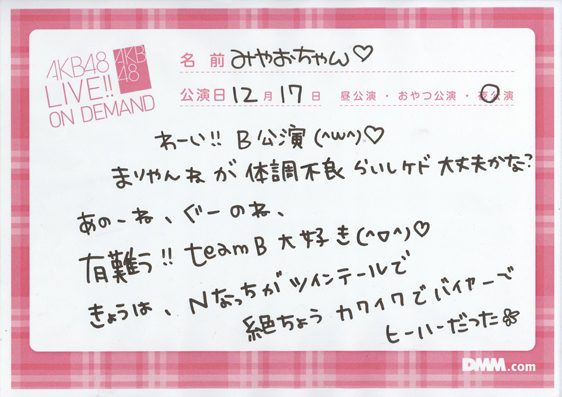 AKB48
LIVE!!
ON DEMAND
AKB
48
名前 みやおちゃん♡
公演日 12月17日 昼公演・おやつ公演・夜公演
わーい!! B公演(^w^)♡
まりやんぬが体調不良らいしケド大丈夫かな?
あのーね、ぐーのね、
有難う!! teamB大好き(^o^)♡
きょうは、Nなっちがツインテールで
絶ちょうカワイクでバイヤーで
ヒーハーだった
DMM.com